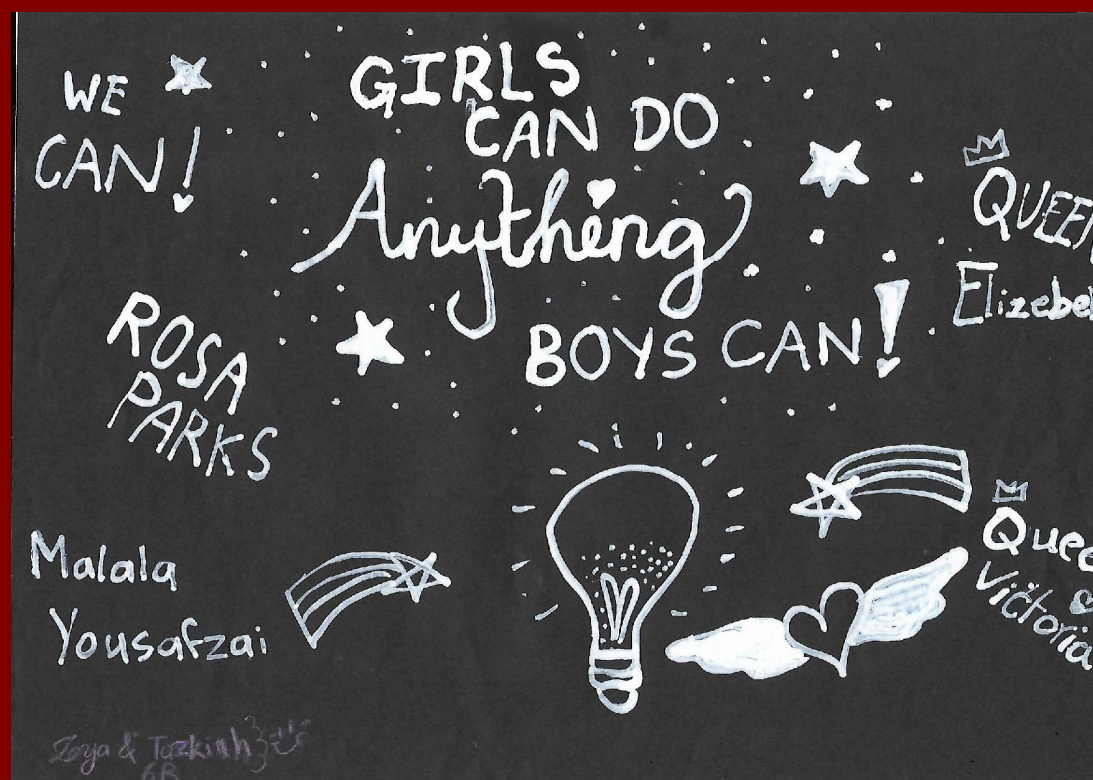 WE
CAN!
GIRLS
CAN DO
Anything
BOYS CAN!
QUEEN
Elizebe
ROSA
PARKS
Malala
Yousafzai
Quee
Victoria
Zoya & Tazkiah
6B